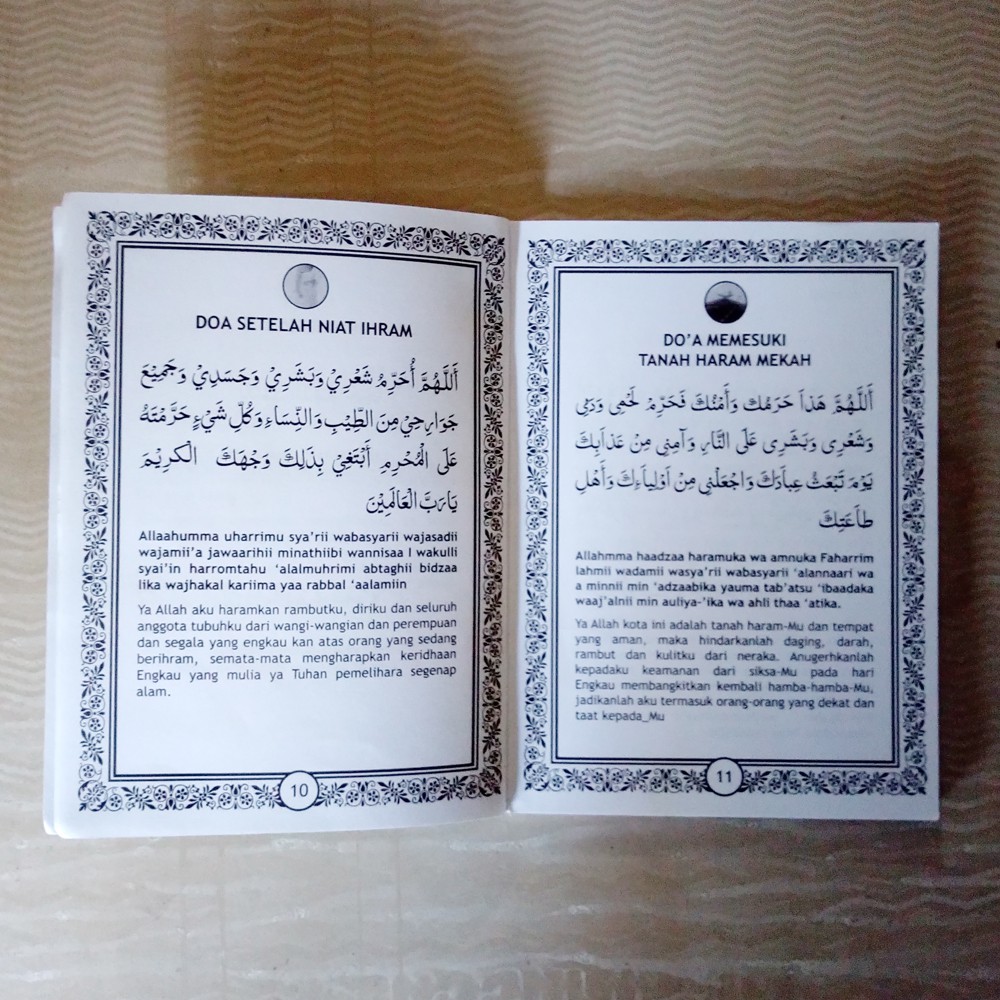 DOA SETELAH NIAT IHRAM
أَللَّهُمَّ أُحَرِّمُ شَعْرِيْ وَبَشَرِيْ وَجَسَدِيْ وَجَمِيْعَ
جَوَارِحِيْ مِنَ الطِّيْبِ وَالنِّسَاءِ وَكُلِّ شَيْءٍ حَرَّمْتَهُ
عَلَى الْمُحْرِمِ أَبْتَغِيْ بِذَلِكَ وَجْهَكَ الْكَرِيْمَ
يَارَبَّ الْعَالَمِيْنَ
Allaahumma uharrimu sya'rii wabasyarii wajasadii
wajamii'a jawaarihii minathiibi wannisaa I wakulli
syai'in harromtahu 'alalmuhrimi abtaghii bidzaa
lika wajhakal kariima yaa rabbal 'aalamiin
Ya Allah aku haramkan rambutku, diriku dan seluruh
anggota tubuhku dari wangi-wangian dan perempuan
dan segala yang engkau kan atas orang yang sedang
berihram, semata-mata mengharapkan keridhaan
Engkau yang mulia ya Tuhan pemelihara segenap
alam.
10
DO'A MEMESUKI
TANAH HARAM MEKAH
أَللَّهُمَّ هَذَا حَرَمُكَ وَأَمْنُكَ فَحَرِّمْ لَحْمِى وَدَمِى
وَشَعْرِى وَبَشَرِى عَلَى النَّارِ وَآمِنِّى مِنْ عَذَابِكَ
يَوْمَ تَبْعَثُ عِبَادَكَ وَاجْعَلْنِى مِنْ أَوْلِيَاءِكَ وَأَهْلِ
طَاعَتِكَ
Allahmma haadzaa haramuka wa amnuka Faharrim
lahmii wadamii wasya'rii wabasyarii 'alannaari wa
a minnii min 'adzaabika yauma tab'atsu 'ibaadaka
waaj'alnii min auliya-'ika wa ahli thaa 'atika.
Ya Allah kota ini adalah tanah haram-Mu dan tempat
yang aman, maka hindarkanlah daging, darah,
rambut dan kulitku dari neraka. Anugerhkanlah
kepadaku keamanan dari siksa-Mu pada hari
Engkau membangkitkan kembali hamba-hamba-Mu,
jadikanlah aku termasuk orang-orang yang dekat dan
taat kepada_Mu
11